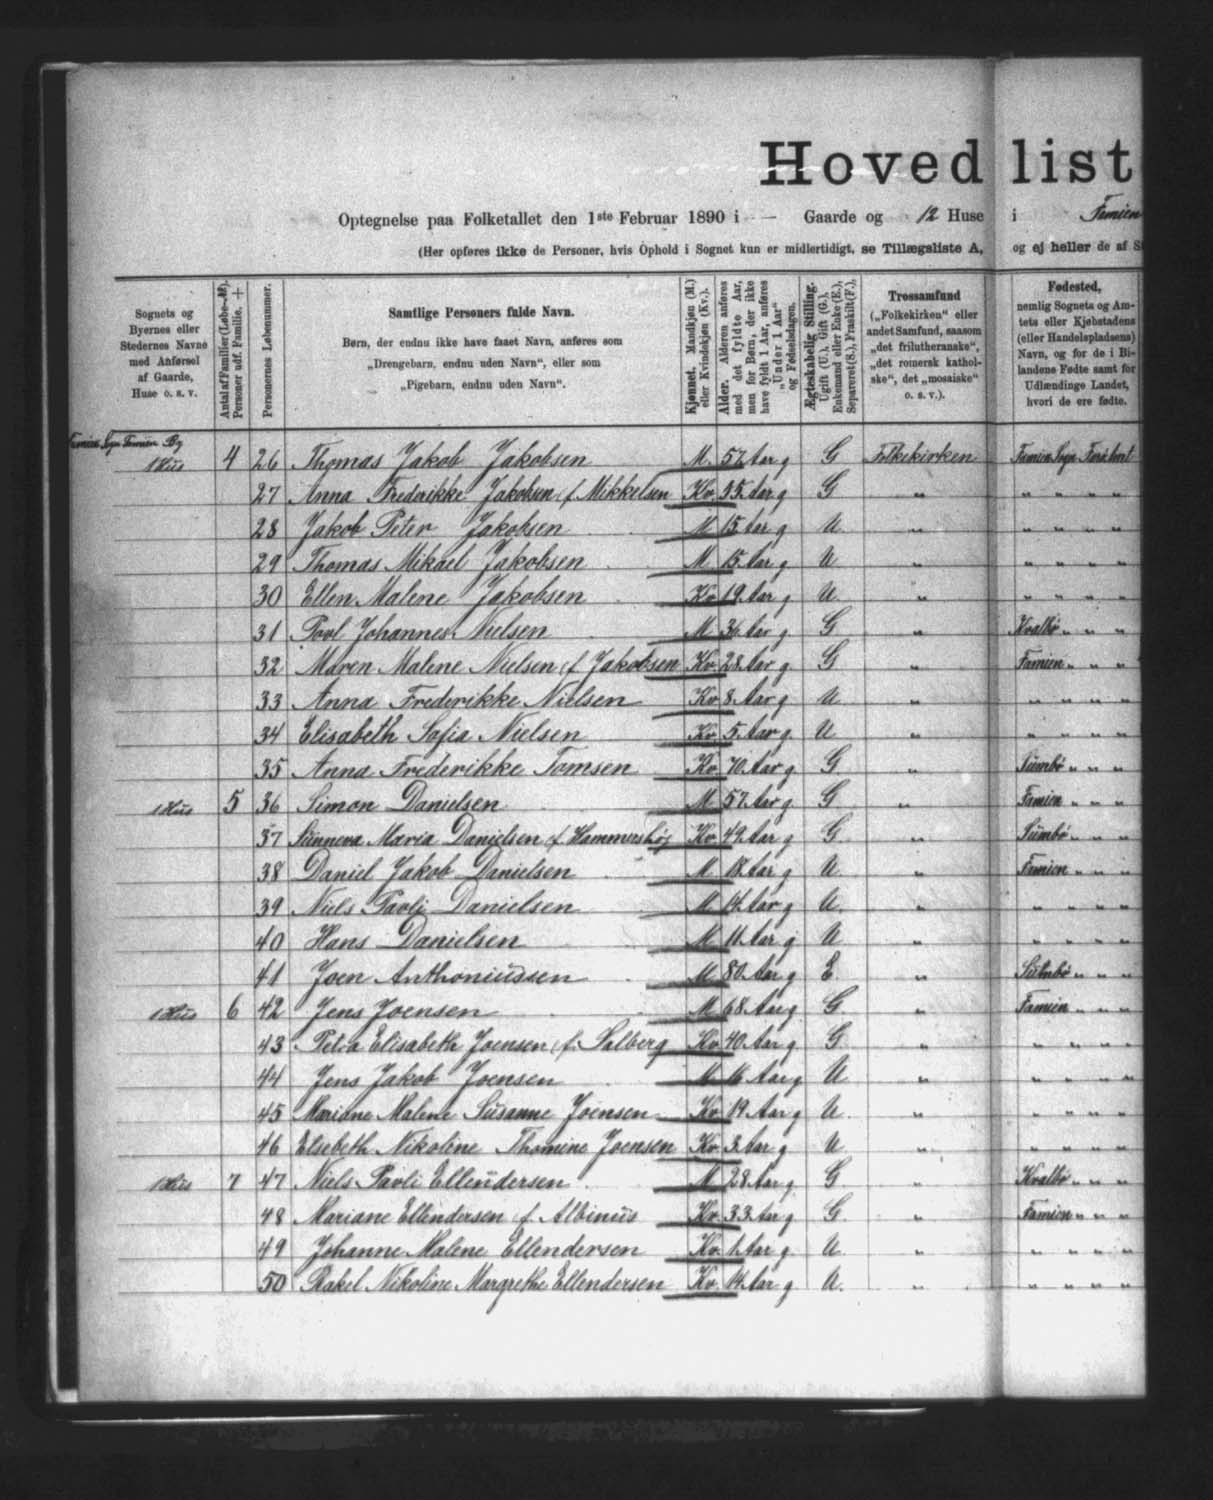 Hovedlist
Optegnelse paa Folketallet den 1ste Februar 1890 i — Gaarde og 12 Huse i Famien
(Her opføres ikke de Personer, hvis Ophold i Sognet kun er midlertidigt, se Tillægsliste A, og ej heller de af
Sognets og Byernes eller Stedernes Navne med Anførsel af Gaarde, Huse o. s. v.
Antal af Familier (Løbe-№). Personer udf. Familie. +
Personernes Løbenummer.
Samtlige Personers fulde Navn.
Børn, der endnu ikke have faaet Navn, anføres som
„Drengebarn, endnu uden Navn“, eller som
„Pigebarn, endnu uden Navn“.
Kjønnet. Mandkjøn (M.) eller Kvindekjøn (Kv.).
Alder. Alderen anføres med det fyldte Aar, men for Børn, der ikke have fyldt 1 Aar, anføres „Under 1 Aar“ og Fødselsdagen.
Ægteskabelig Stilling. Ugift (U.), Gift (G.), Enkemand eller Enke (E.), Separeret (S.), Fraskilt (F.).
Trossamfund
(„Folkekirken“ eller andet Samfund, saasom „det frilutheranske“, „det romersk katholske“, det „mosaiske“ o. s. v.).
Fødested,
nemlig Sognets og Amtets eller Kjøbstadens (eller Handelspladsens) Navn, og for de i Bilandene Fødte samt for Udlændinge Landet, hvori de ere fødte.
Famien Sogn Famien By
1 Hus 4 26 Thomas Jakob Jakobsen M. 57 Aar g G Folkekirken Famien Sogn
27 Anna Frederikke Jakobsen f. Mikkelsen Kv. 55 Aar g G „ „ „ „ „
28 Jakob Peter Jakobsen M 15 Aar g U „ „ „ „ „
29 Thomas Mikael Jakobsen M 15 Aar g U „ „ „ „ „
30 Ellen Malene Jakobsen Kv 19 Aar g U „ „ „ „ „
31 Povl Johannes Nielsen M 36 Aar g G „ Kvalbø „ „ „
32 Maren Malene Nielsen f. Jakobsen Kv. 28 Aar g G „ Famien „ „ „
33 Anna Frederikke Nielsen Kv 8 Aar g U „ „ „ „ „
34 Elisabeth Sofia Nielsen Kv. 5 Aar g U „ „ „ „ „
35 Anna Frederikke Tomsen Kv 70 Aar g G „ Sümbø „ „ „
1 Hus 5 36 Simon Danielsen M 57 Aar g G „ Famien „ „ „
37 Sünneva Maria Danielsen f. Hammershøj Kv. 49 Aar g G „ Sümbø „ „ „
38 Daniel Jakob Danielsen M 18 Aar g U „ Famien „ „ „
39 Niels Pavli Danielsen M 14 Aar g U „ „ „ „ „
40 Hans Danielsen M 11 Aar g U „ „ „ „ „
41 Joen Anthoniüssen M 80 Aar g E. „ Sümbø „ „ „
1 Hus 6 42 Jens Joensen M 68 Aar g G. „ Famien „ „ „
43 Petra Elisabeth Joensen f. Salberg Kv 40 Aar g G. „ „ „ „ „
44 Jens Jakob Joensen M 16 Aar g U „ „ „ „ „
45 Mariane Malene Süsanne Joensen Kv 19 Aar g U „ „ „ „ „
46 Elsebeth Nikoline Thomine Joensen Kv 3 Aar g U „ „ „ „ „
1 Hus 7 47 Niels Pavli Ellendersen M 28 Aar g G. „ Kvalbø „ „ „
48 Mariane Ellendersen f. Albinüs Kv. 33 Aar g G. „ Famien „ „ „
49 Johanne Malene Ellendersen Kv. 1 Aar g U. „ „ „ „ „
50 Rakel Nikoline Margrethe Ellendersen Kv. 14 Aar g U. „ „ „ „ „